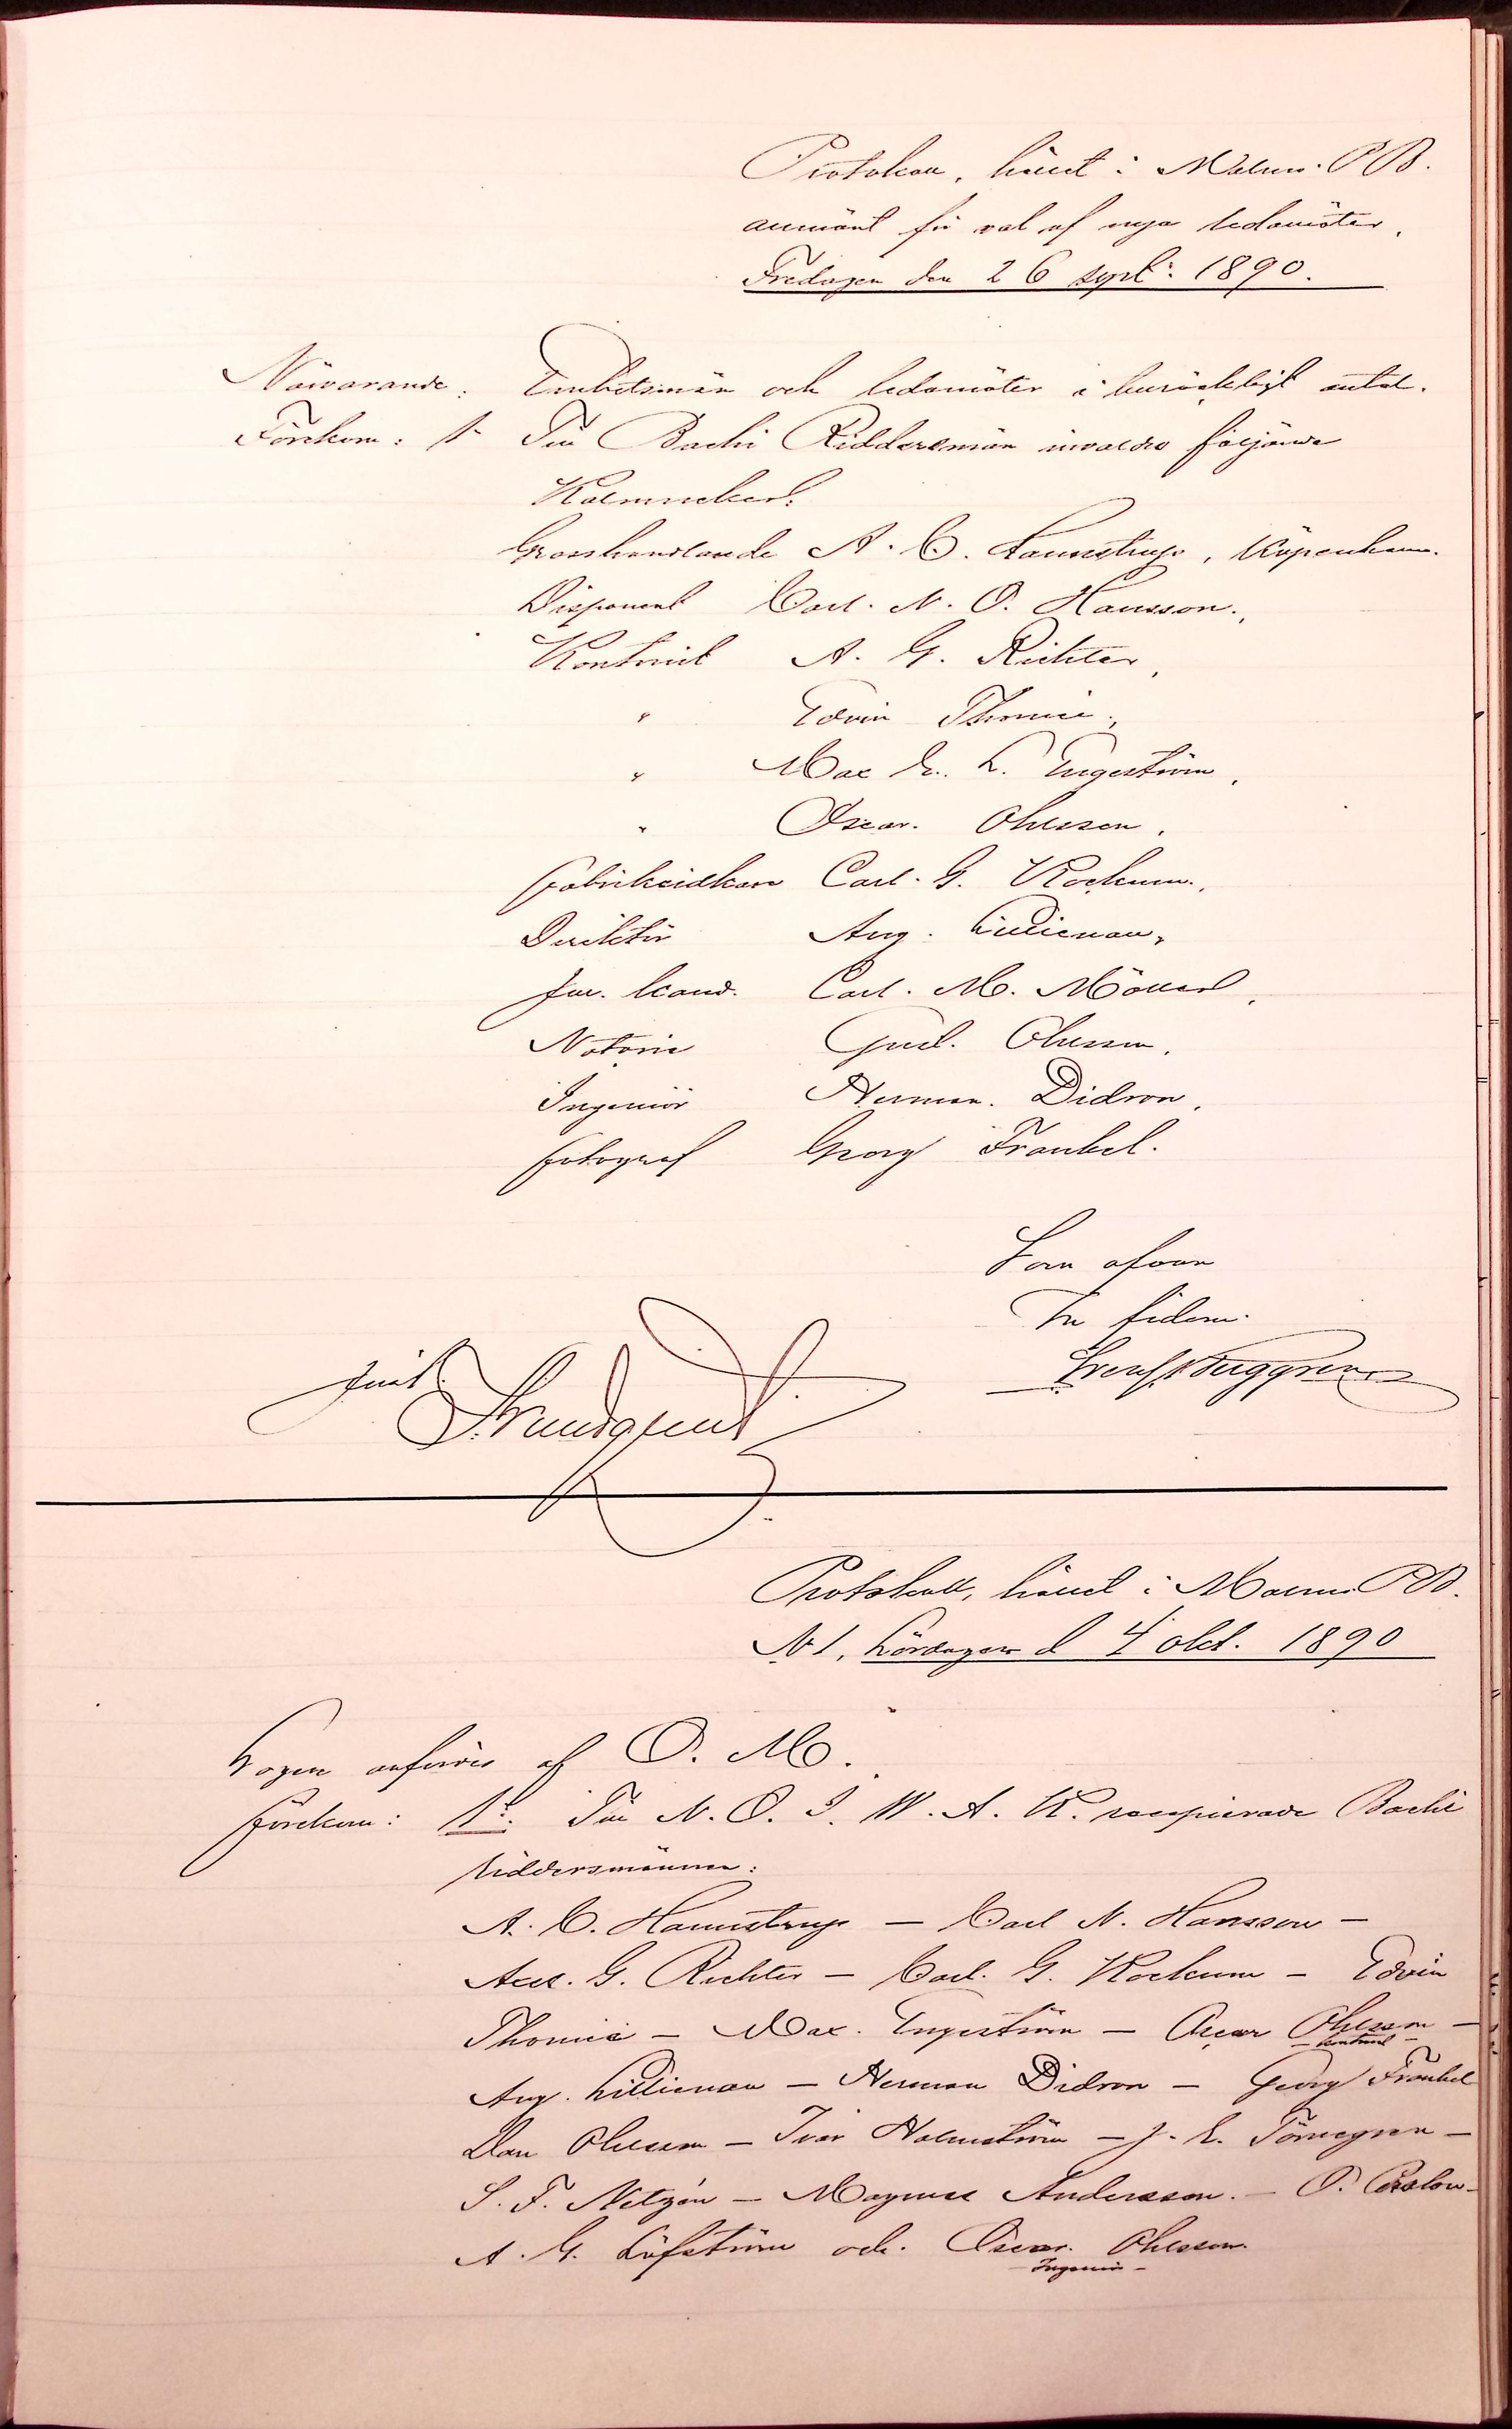 Protokoll, hållet i Malmö P B.
allmänt för val af nya ledamöter,
Fredagen den 26 sept: 1890.
Närvarande: Embetsmän och ledamöter i behörigt antal.
Förekom: 1- Till Bachi Riddersmän invaldes följande
Grosshandlande A. C. Haunstrup, Köpenhamn.
Disponent Carl. N. O. Hansson,
Kontorist A. G. Richter,
" Edvin Thomée,
" Max E. L. Engeström,
" Oscar. Ohlsson,
Fabriksidkare Carl. G. Kockum,
Direktör Aug. Lillienau,
Jur. Cand. Carl. M. Möller,
Notarie Gust. Ohlsson,
Ingeniör Herman. Didron,
Fotograf Georg Frankel.
Som ofvan
In fidem.
Berggren
Just.
Protokoll, hållet i Malmö P B.
N 1, Lördagen d 4 okt. 1890
Logen anfördes af O. M.
Förekom: 1: Till N. O. I. W. A. K. recipierade Bachi
Riddersmännen:
A. C. Haunstrup — Carl N. Hansson —
Axel. G. Richter — Carl. G. Kockum — Edvin
Thomée — Max. Engeström — Oscar Ohlsson —
— kontorist —
Aug. Lillienau — Herman Didron — Georg Frankel
Dan Ohlsson — Ivar Holmström — J. E. Törnegren —
S. F. Netzén — Magnus Andersson. — O. Carlow —
A. G. Löfström och. Oscar. Ohlsson.
— Ingeniör —